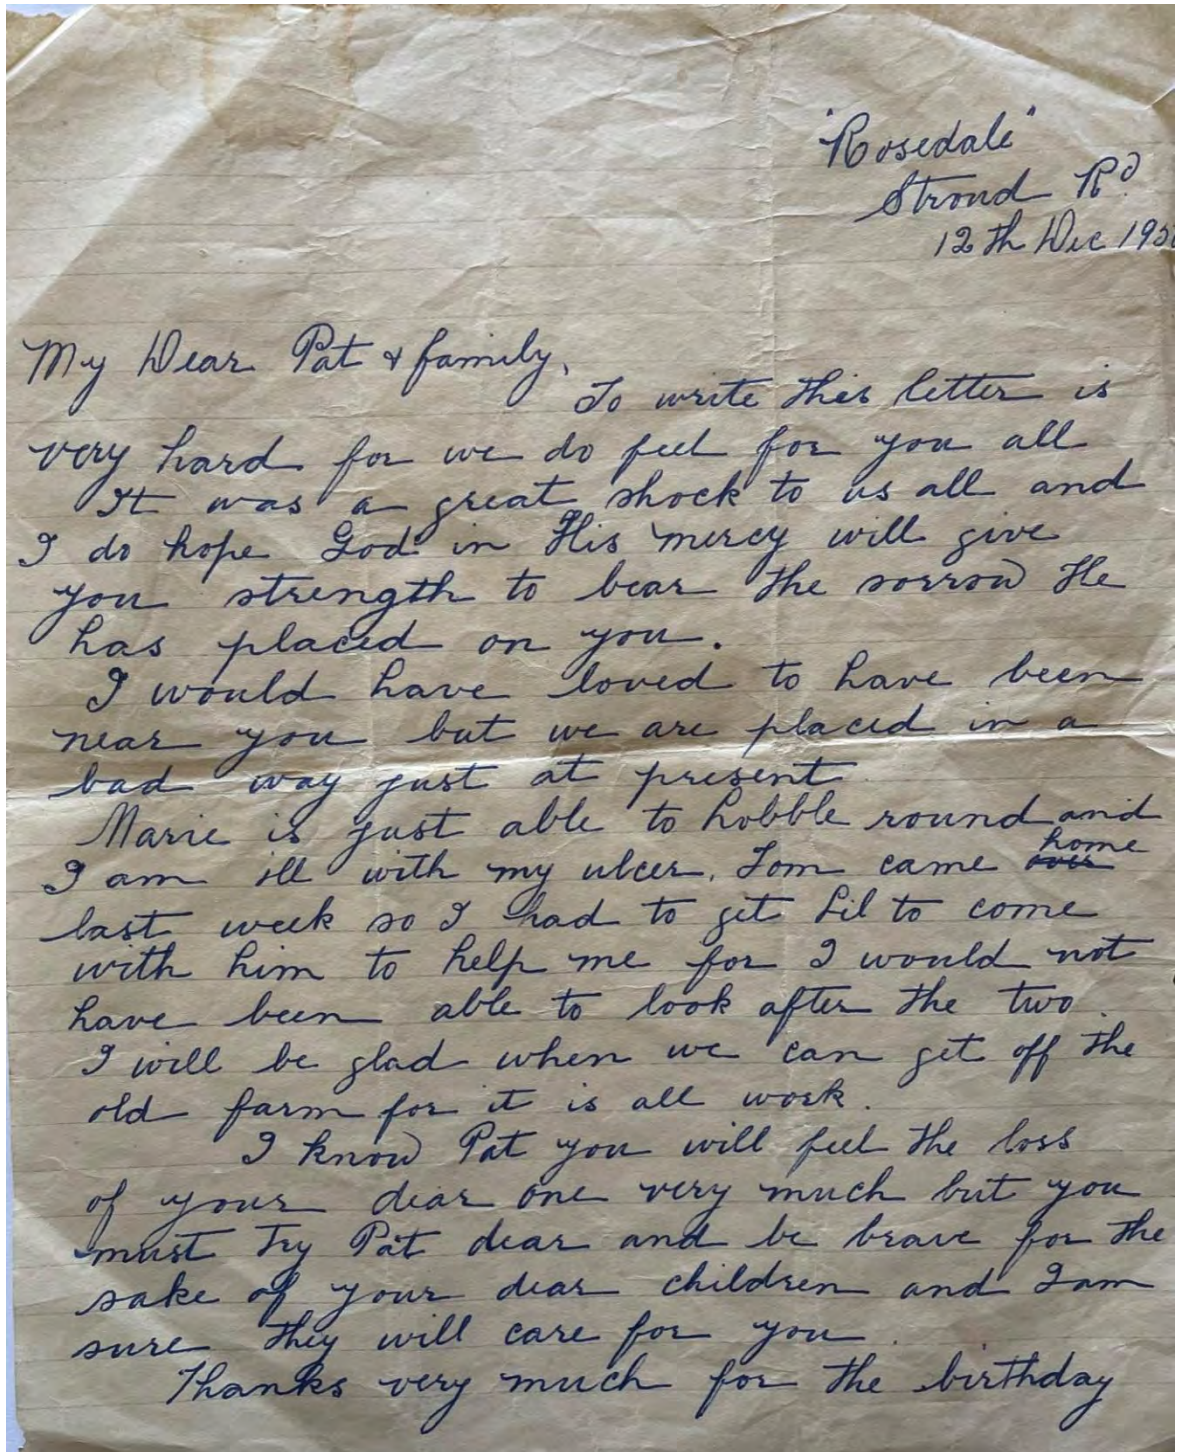 "Rosedale"
Stroud Rd.
12th Dec 195
My Dear Pat & family,
To write this letter is
very hard for we do feel for you all
It was a great shock to us all and
I do hope God in His mercy will give
you strength to bear the sorrow He
has placed on you.
I would have loved to have been
near you but we are placed in a
bad way just at present
Marie is just able to hobble round and
I am ill with my ulcer. Tom came over home
last week so I had to get Lil to come
with him to help me for I would not
have been able to look after the two.
I will be glad when we can get off the
old farm for it is all work.
I know Pat you will feel the loss
of your dear one very much but you
must try Pat dear and be brave for the
sake of your dear children and I am
sure they will care for you.
Thanks very much for the birthday